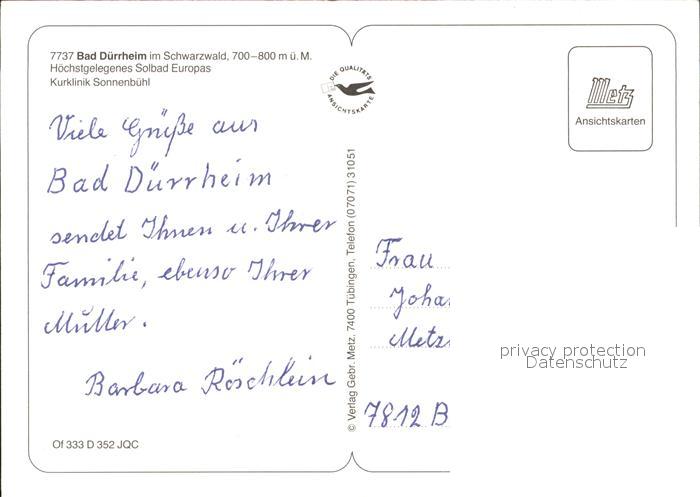 7737 Bad Dürrheim im Schwarzwald, 700–800 m ü. M.
Höchstgelegenes Solbad Europas
Kurklinik Sonnenbühl
DIE QUALITÄTS ANSICHTSKARTE
Metz
Ansichtskarten
Viele Grüße aus
Bad Dürrheim
sendet Ihnen u. Ihrer
Familie, ebenso Ihrer
Mutter.
Barbara Röschlein
Of 333 D 352 JQC
© Verlag Gebr. Metz, 7400 Tübingen, Telefon (07071) 31051
Frau
Joha
Metz
7812 B
privacy protection
Datenschutz